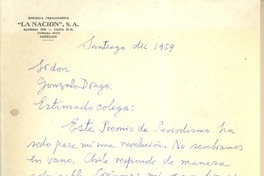 EMPRESA PERIODISTICA
"LA NACION", S.A.
SANTIAGO
Santiago dic 1959
Sr don
Gonzalo Drago.
Estimado colega:
Este Premio de Periodismo ha
sido para mi una revelación. No sembramos
en vano. Chile responde de manera